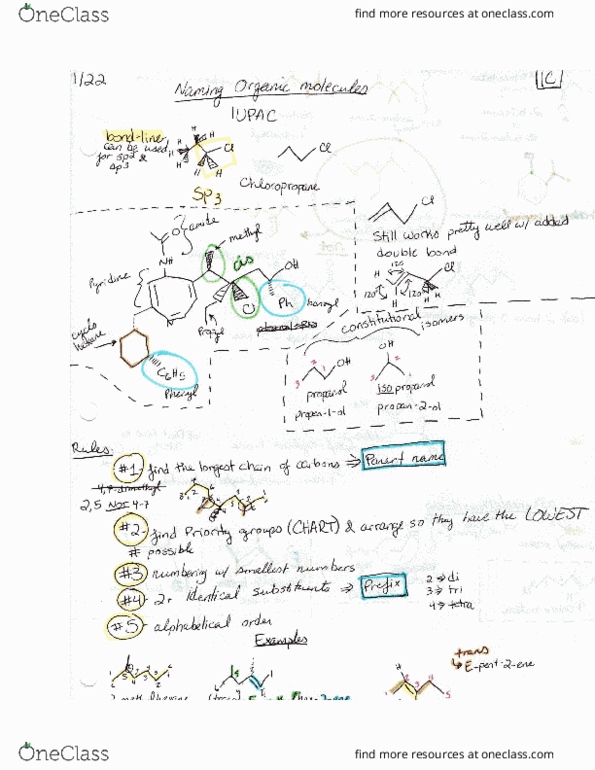 OneClass
find more resources at oneclass.com
1/22
Naming Organic molecules
1C
IUPAC
bond-line
can be used
for sp2 &
sp3
H
H
H
H
H
H
H
Cl
Cl
Chloropropane
SP3
amide
O
NH
methyl
cis
OH
Pyridine
N
Propyl
Cl
Ph
cyclo
hexane
C6H5
Phenyl
Cl
Still works pretty well w/ added
double bond
120
H
Cl
H
120
120
H
constitutional
isomers
OH
OH
3
2
1
3
2
1
propanol
isopropanol
propan-1-ol
propan-2-ol
Rules:
#1- find the longest chain of carbons ⇒ Parent name
4,7 dimethyl
2,5 NOT 4-7
#2- find Priority groups (CHART) & arrange so they have the LOWEST
# possible
#3 numbering w/ smallest numbers
#4- 2+ Identical substituents ⇒ Prefix
2 ⇒ di
3 ⇒ tri
4 ⇒ tetra
#5- alphabetical order
Examples
trans
↳ E-pent-2-ene
OneClass
find more resources at oneclass.com